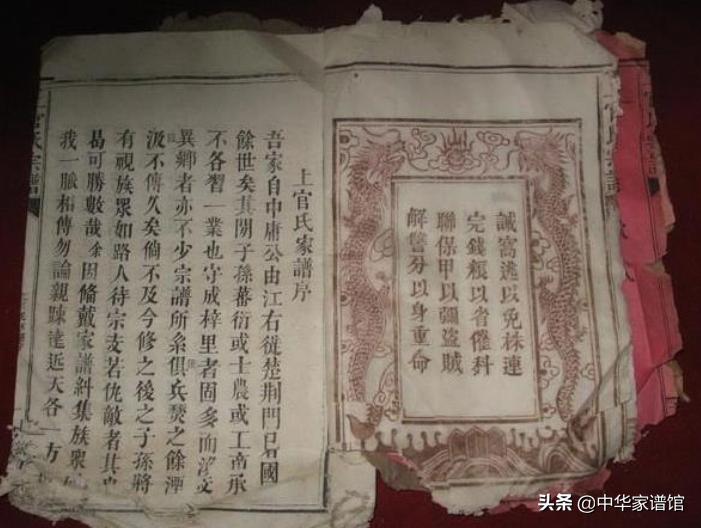 官氏宗譜
誡窩逃以免株連
完錢糧以省催科
聯保甲以彌盜賊
解讐忿以身重命
上官氏家譜序
吾家自中庸公由江右徙楚荆門已國
餘世矣其閒子孫蕃衍或士農或工商承
不各習一業也守成梓里者固多而
異鄉者亦不少宗譜所系俱兵焚之餘湮
汲不傳久矣倘不及今修之後之子孫將
有視族眾如路人待宗支若仇敵者其
曷可勝數哉余因脩戴家譜糾集族眾
我一脈相傳勿論親踈遠近天各一方
官氏宗譜
头条 @中华家谱馆